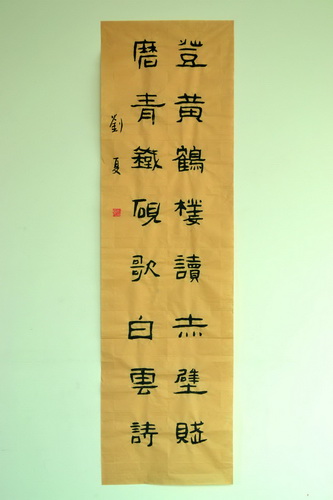 登黄鶴樓讀赤壁賦
磨青鐵硯歌白雲詩
劉夏